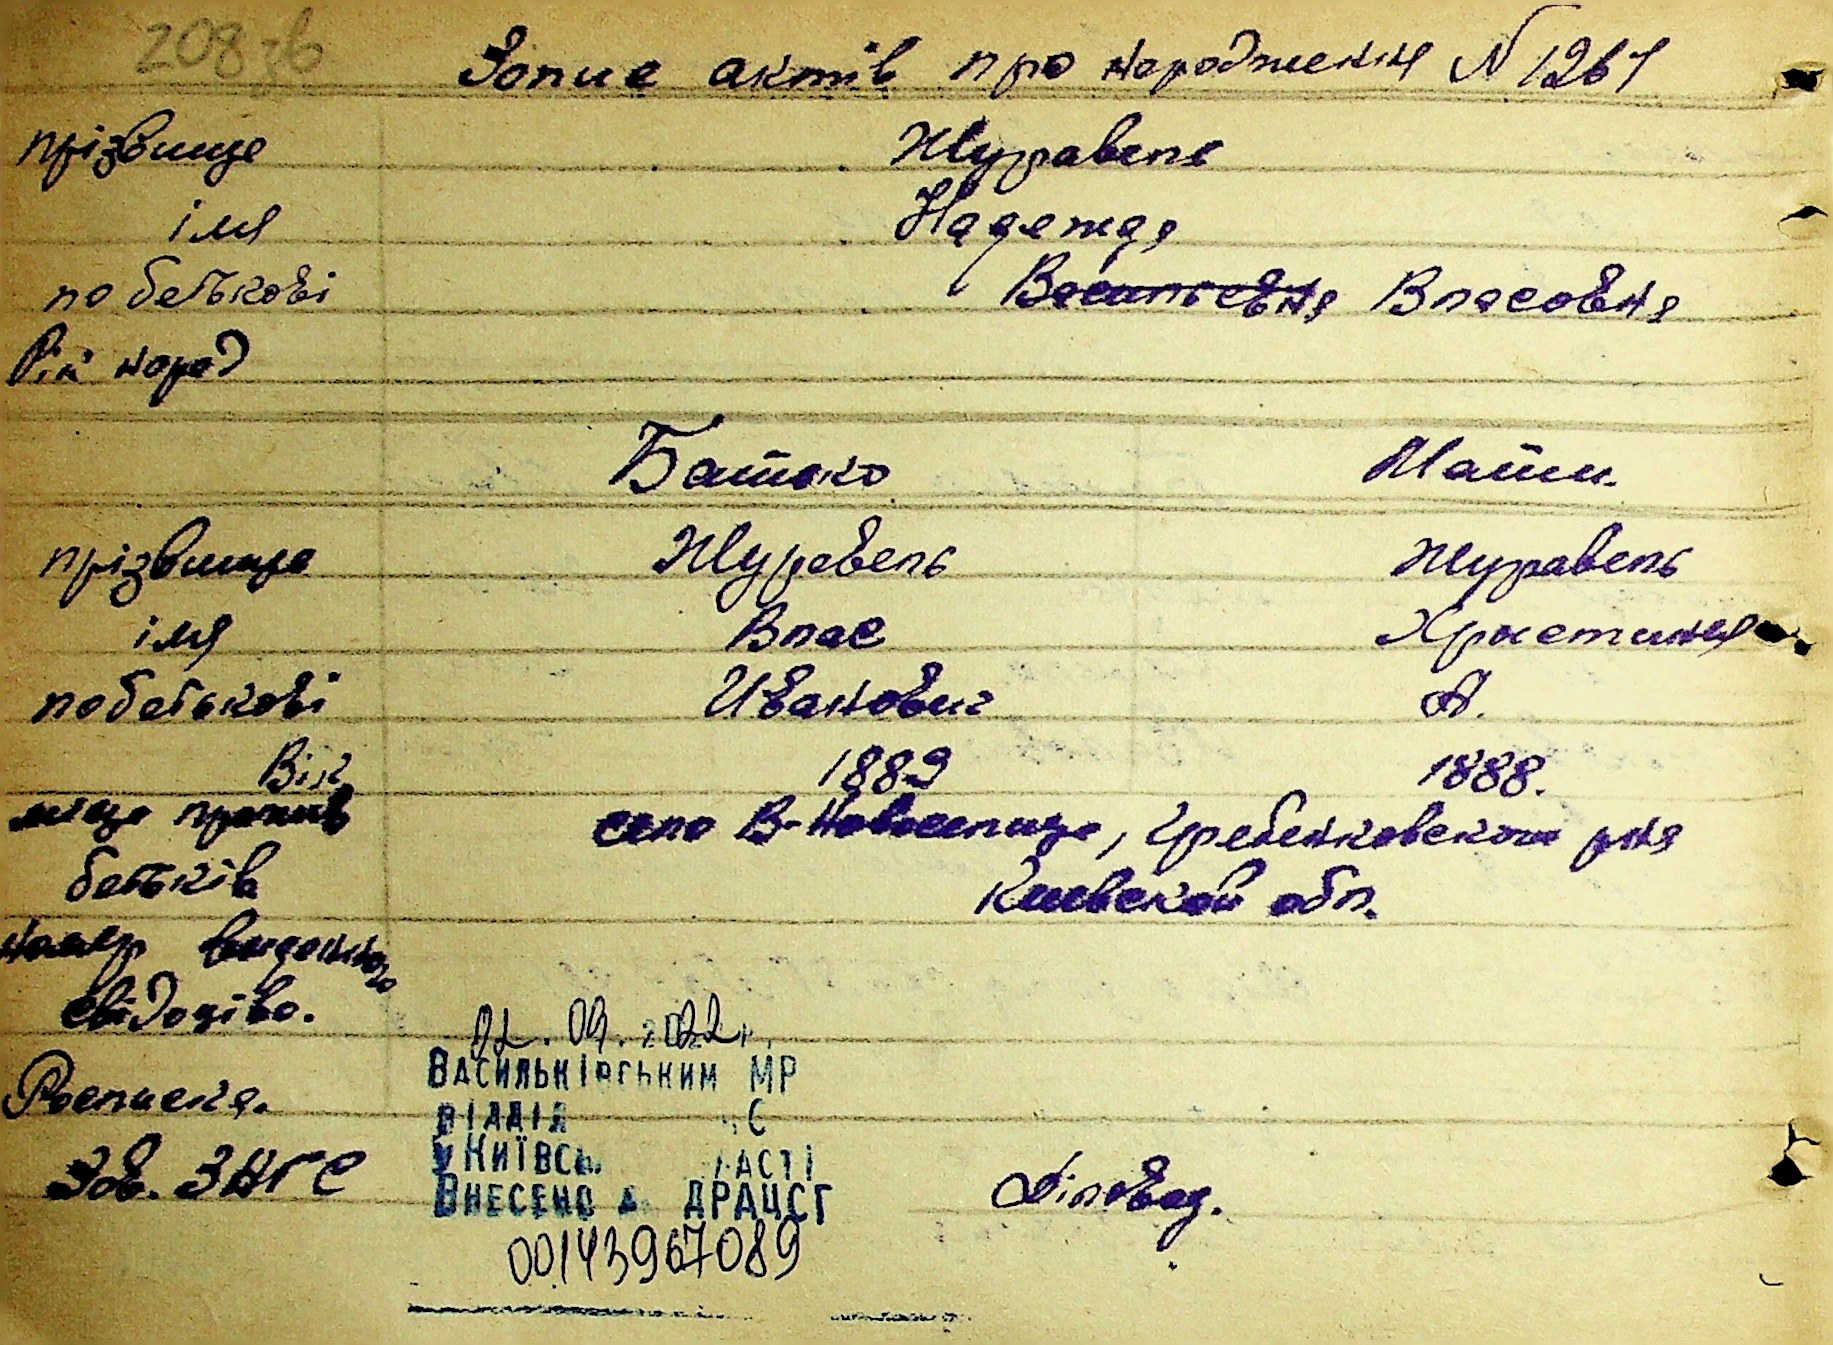 208 зв
Запис актів про народження N 1261
прізвище Журавель
імя Надежда
по батькові Васильевна Власовна
Рік народ
Батько Мати.
прізвище Журавель Журавель
імя Влас Христиния
по батькові Иванович А.
Вік 1889 1888.
місце прожив село В-Новоселица, Гребенковского р-на
батьків Киевской обл.
номер виданного
свідоцтво.
02.09.2022 г.
Васильківським МР
Розписка.
відділ С
Зав. ЗАГС у Київсь ласті
Внесено д ДРАЦСГ
Діловод.
00143967089